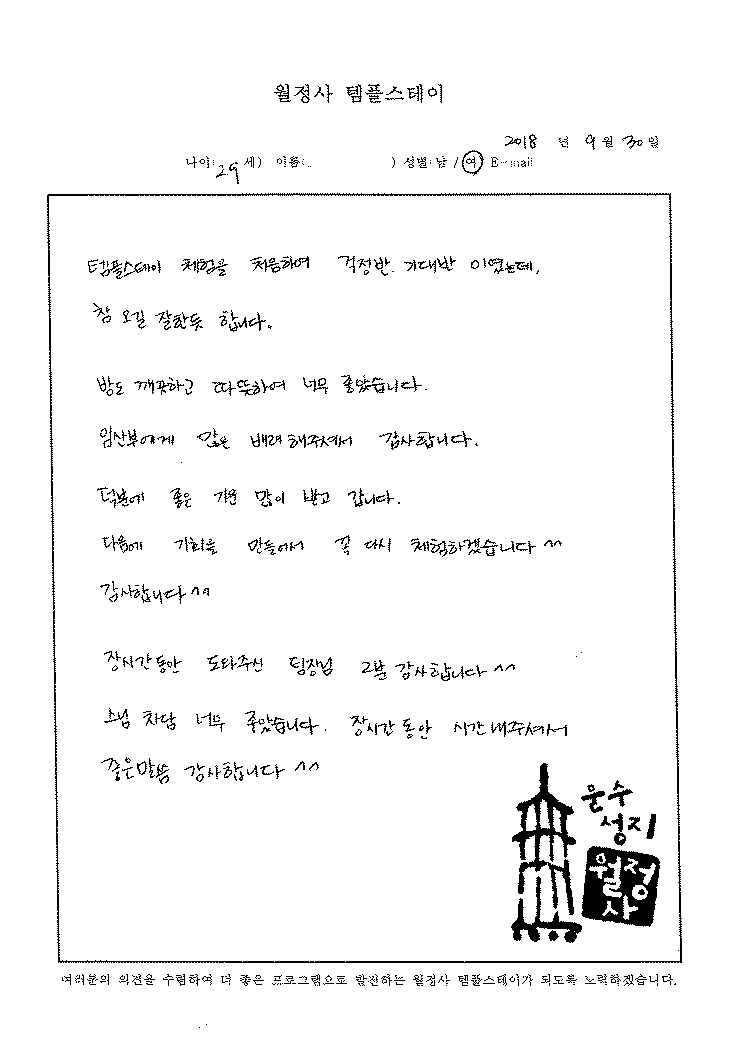 월정사 템플스테이
2018 년 9 월 30 일
나이: 29 세) 이름: ) 성별: 남 / 여 E-mail
템플스테이 체험을 처음하여 걱정반. 기대반 이였는데,
참 오길 잘한듯 합니다.
방도 깨끗하고 따뜻하여 너무 좋았습니다.
임산부에게 많은 배려해주셔서 감사합니다.
덕분에 좋은 기운 많이 받고 갑니다.
다음에 기회을 만들어서 꼭 다시 체험하겠습니다 ^^
감사합니다 ^^
장시간동안 도와주신 팀장님 2분 감사합니다 ^^
스님 차담 너무 좋았습니다. 장시간 동안 시간내주셔서
좋은말씀 감사합니다 ^^
문수
성지
월정
사
여러분의 의견을 수렴하여 더 좋은 프로그램으로 발전하는 월정사 템플스테이가 되도록 노력하겠습니다.